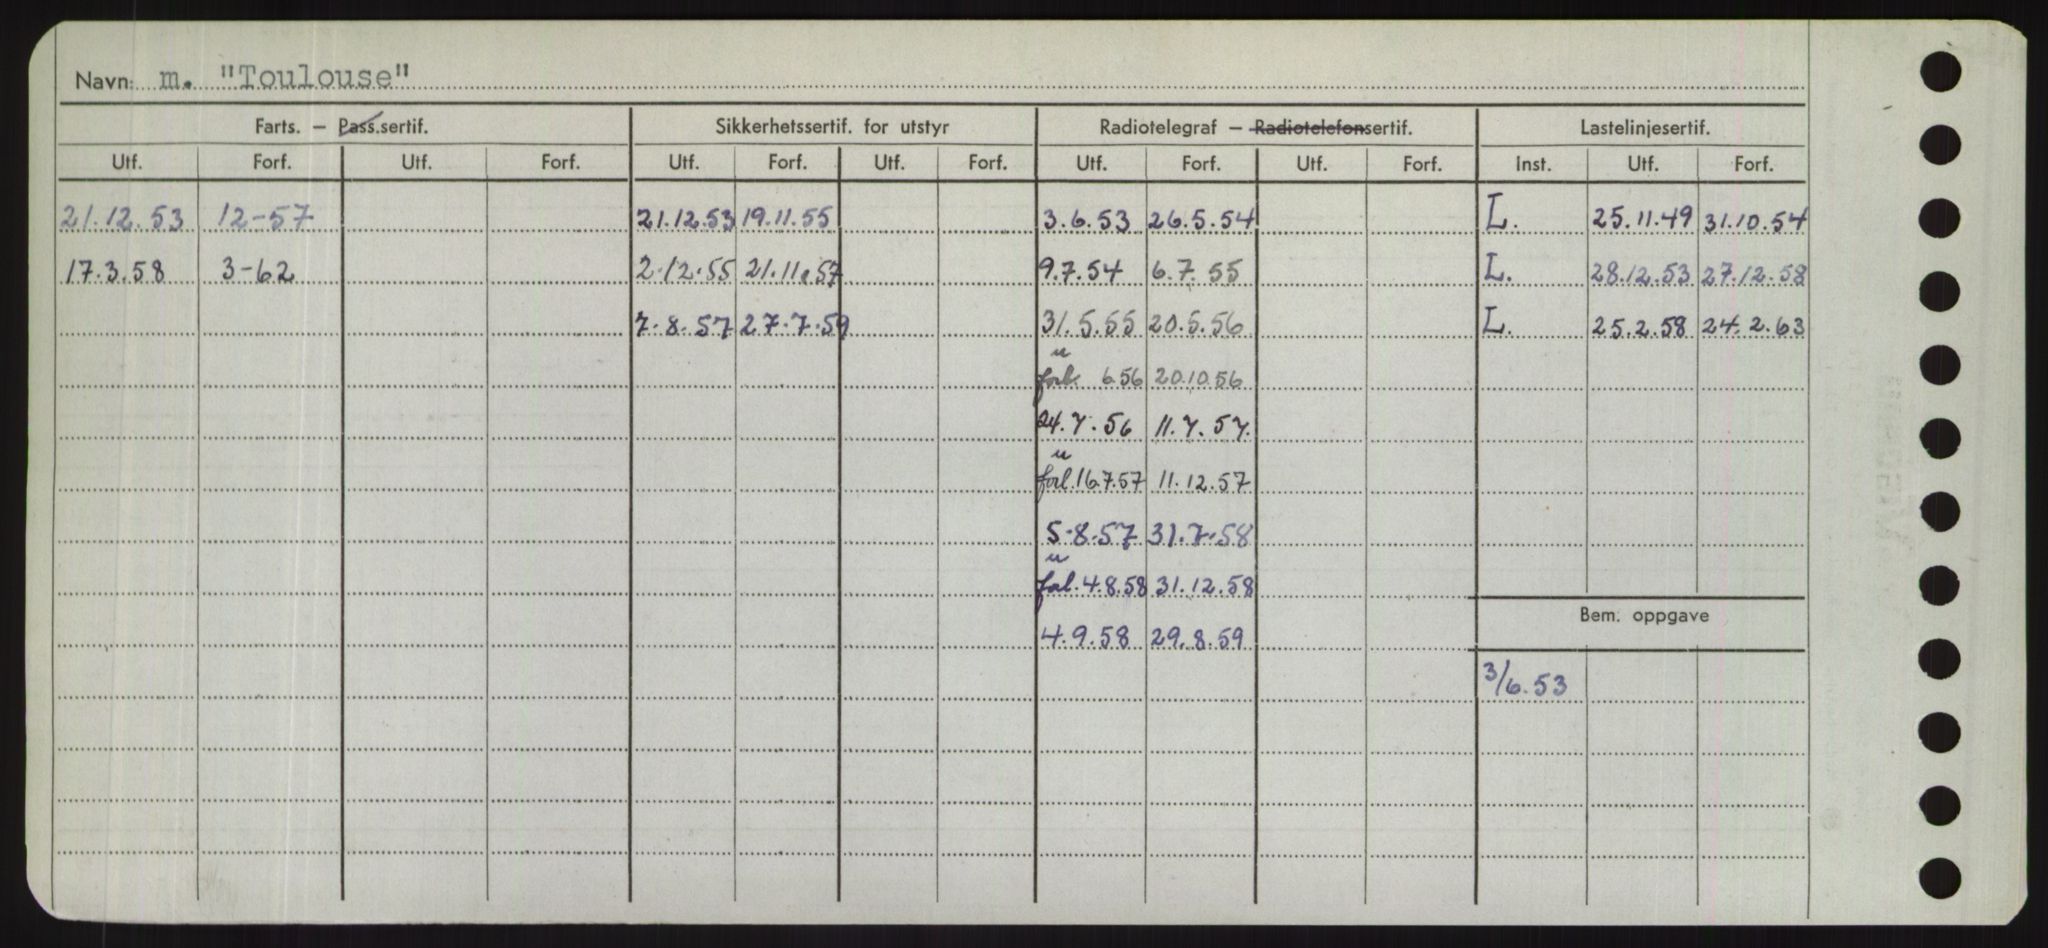 Navn: m. "Toulouse"
Farts. – Pass.sertif. Sikkerhetssertif. for utstyr Radiotelegraf – Radiotelefonsertif. Lastelinjesertif.
Utf. Forf. Utf. Forf. Utf. Forf. Utf. Forf. Utf. Forf. Utf. Forf. Inst. Utf. Forf.
21.12.53 12-57 21.12.53 19.11.55 3.6.53 26.5.54 L. 25.11.49 31.10.54
17.3.58 3-62 2.12.55 21.11.57 9.7.54 6.7.55 L. 28.12.53 27.12.58
7.8.57 27.7.59 31.5.55 20.5.56 L. 25.2.58 24.2.63
u
forl. 6.56 20.10.56
24.7.56 11.7.57.
u
forl. 16.7.57 11.12.57
5.8.57 31.7.58
u
forl. 4.8.58 31.12.58
Bem. oppgave
4.9.58 29.8.59
3/6.53